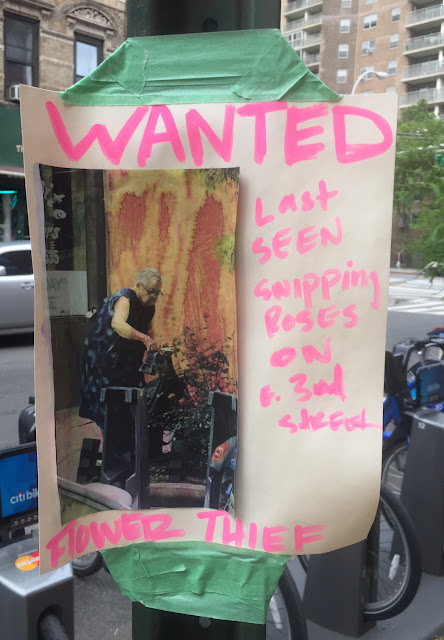 WANTED
Last
SEEN
snipping
ROSES
ON
E. 3rd
STREET
FLOWER THIEF
citibik